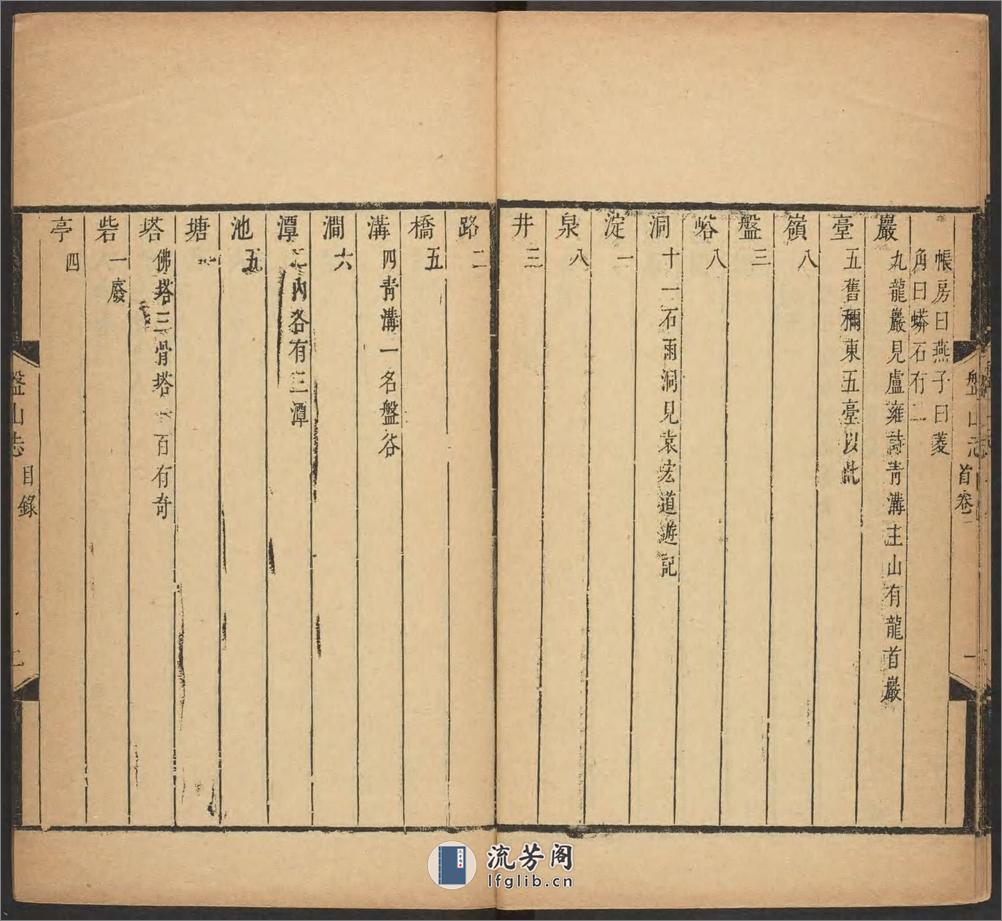 帳房曰燕子曰菱
角曰蟒石有二
巖
九龍巖見盧雍詩青溝主山有龍首巖
臺
五舊稱東五臺以此
嶺
八
盤
三
峪
八
洞
十一石雨洞見袁宏道遊記
淀
一
泉
八
井
三
盤山志
首卷
路
二
橋
五
溝
四青溝一名盤谷
澗
六
潭
內各有三潭
池
五
塘
塔
佛塔三骨塔一百有奇
砦
一廢
亭
四
盤山志
目錄
流芳阁
lfglib.cn